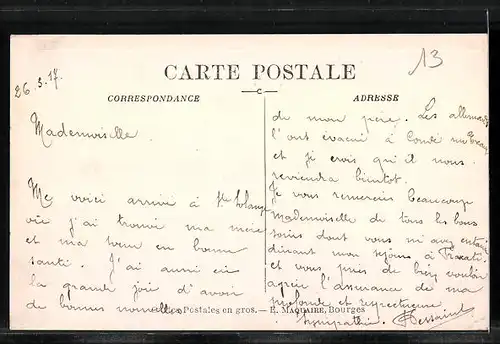 26.3.17
13
CARTE POSTALE
CORRESPONDANCE
ADRESSE
Mademoiselle.
Me voici arrivé à Ste Solange
où j'ai trouvé ma mère
et ma sœur en bonne
santé. J'ai aussi eu
la grande joie d'avoir
de bonnes nouvelles
de mon père. Les allemands
l'ont évacué à Condé sur
et je crois qu'il nous
reviendra bientôt.
Je vous remercie beaucoup
Mademoiselle de tous les bons
soins dont vous m'avez entouré
durant mon séjour à
et vous prie de bien vouloir
agréer l'assurance de ma
profonde et respectueuse
sympathie. Dessaint
Postales en gros. — E. MAQUAIRE, Bourges